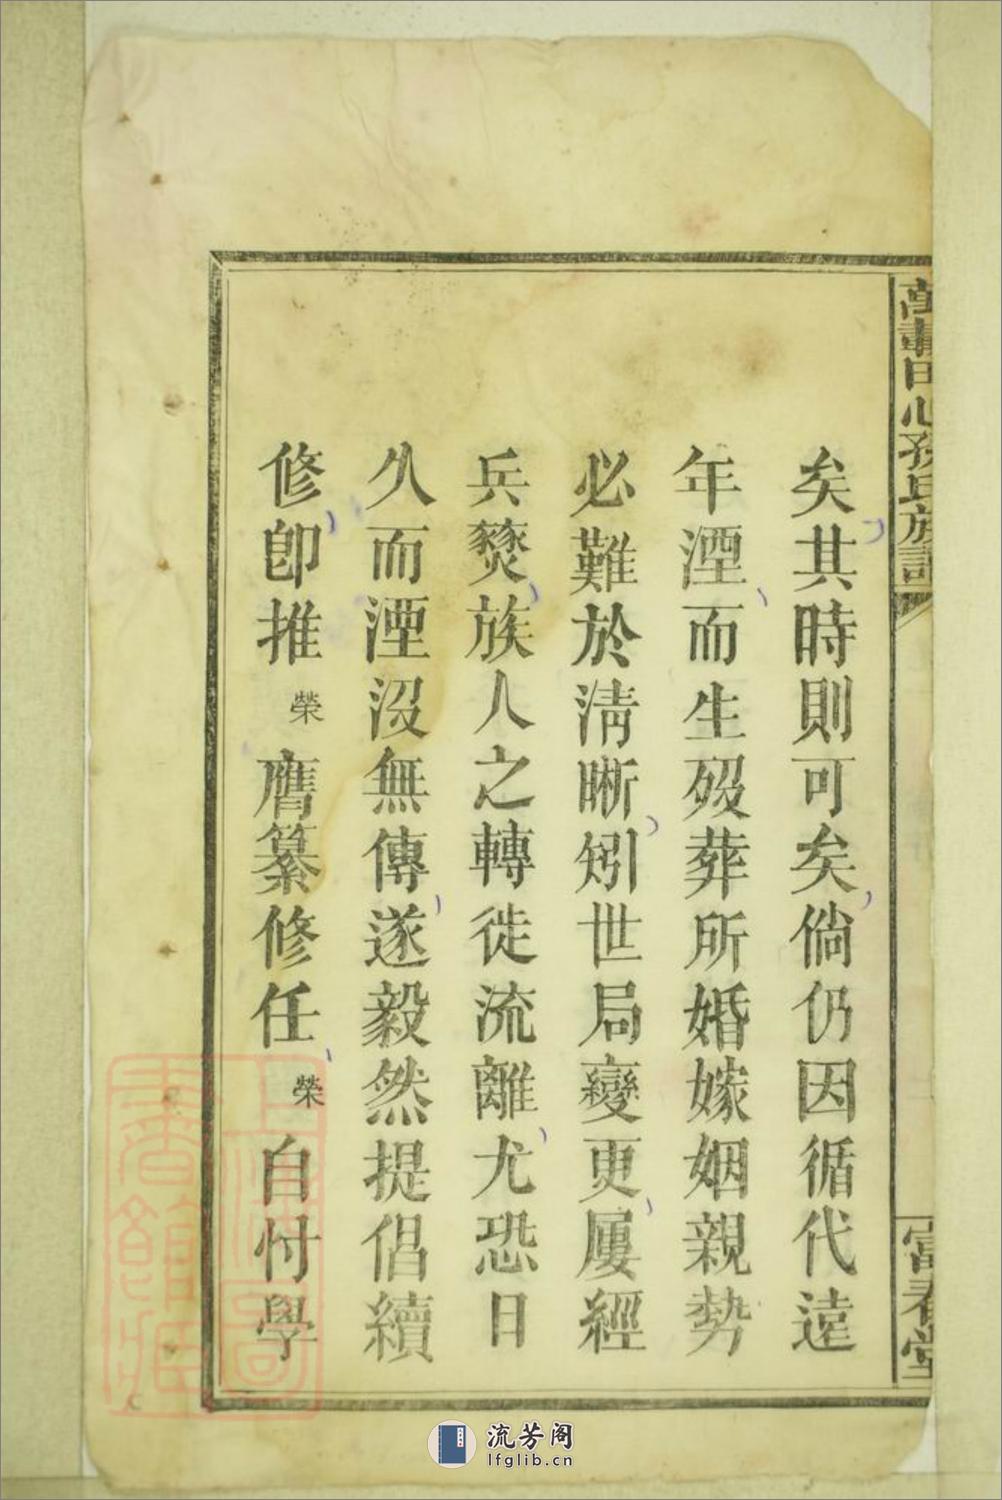 萬載田心孫氏族譜
富春堂
矣其時則可矣倘仍因循代遠
年湮而生歿葬所婚嫁姻親勢
必難於淸晰矧世局變更屢經
兵燹族人之轉徙流離尤恐日
久而湮沒無傳遂毅然提倡續
修卽推榮膺纂修任榮自忖學
上海圖書館藏
流芳阁
lfglib.cn